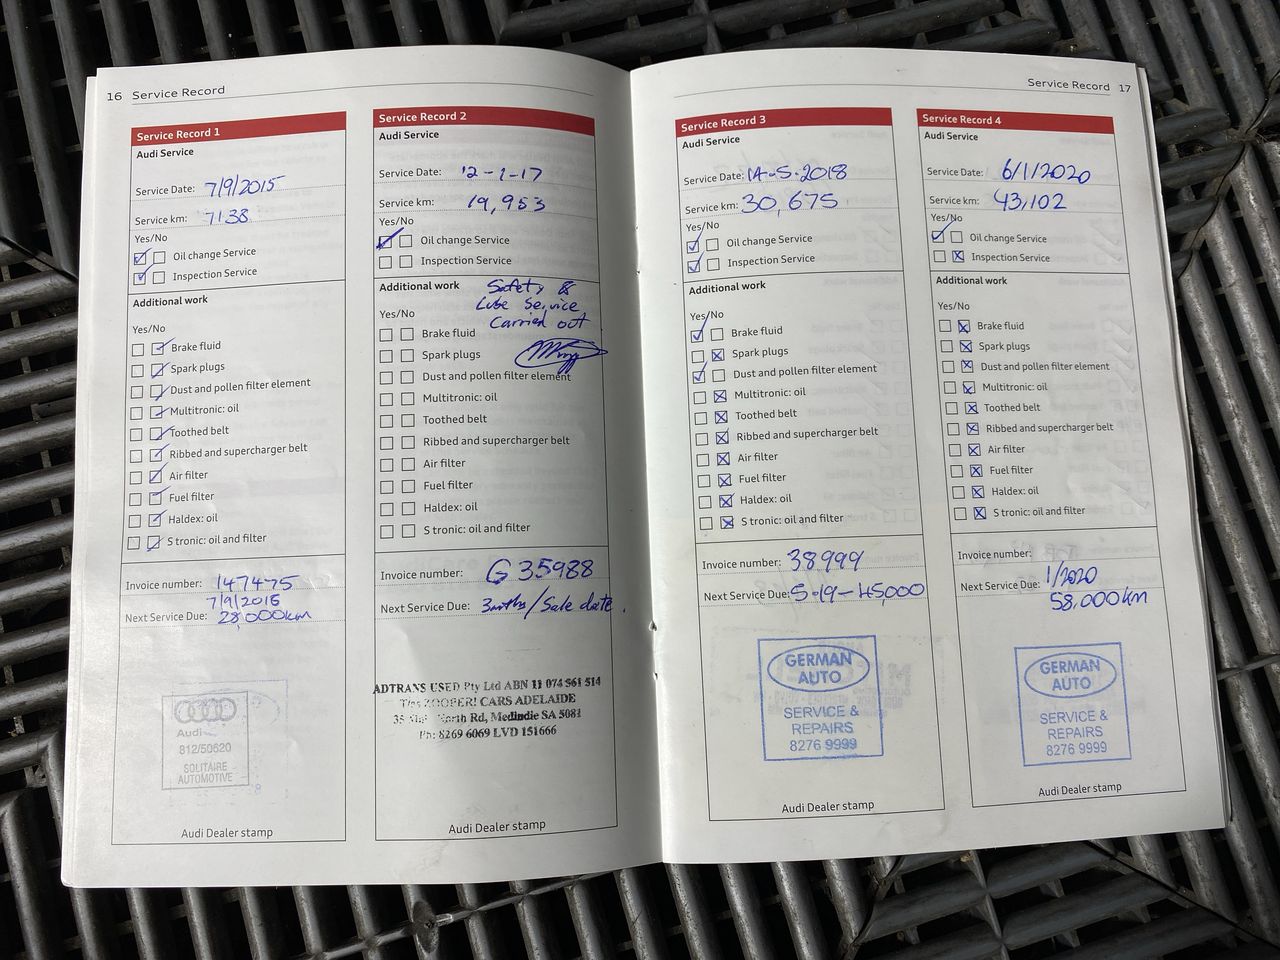 16 Service Record
Service Record 1
Audi Service
Service Date: 7/9/2015
Service km: 7138
Yes/No
Oil change Service
Inspection Service
Additional work
Yes/No
Brake fluid
Spark plugs
Dust and pollen filter element
Multitronic: oil
Toothed belt
Ribbed and supercharger belt
Air filter
Fuel filter
Haldex: oil
S tronic: oil and filter
Invoice number: 147475
7/9/2016
Next Service Due: 28,000km
Audi
812/50620
SOLITAIRE
AUTOMOTIVE
Audi Dealer stamp
Service Record 2
Audi Service
Service Date: 12-1-17
Service km: 19,953
Yes/No
Oil change Service
Inspection Service
Additional work
Safety &
Lube Service
Carried out
Yes/No
Brake fluid
Spark plugs
Dust and pollen filter element
Multitronic: oil
Toothed belt
Ribbed and supercharger belt
Air filter
Fuel filter
Haldex: oil
S tronic: oil and filter
Invoice number: G 35988
Next Service Due: 3mths/Sale date.
ADTRANS USED Pty Ltd ABN 11 074 561 514
CARS ADELAIDE
North Rd, Medindie SA 5081
Ph: 8269 6069 LVD 151666
Audi Dealer stamp
Service Record 17
Service Record 3
Audi Service
Service Date: 14-5-2018
Service km: 30,675
Yes/No
Oil change Service
Inspection Service
Additional work
Yes/No
Brake fluid
Spark plugs
Dust and pollen filter element
Multitronic: oil
Toothed belt
Ribbed and supercharger belt
Air filter
Fuel filter
Haldex: oil
S tronic: oil and filter
Invoice number: 38999
Next Service Due: 5-19-45,000
GERMAN
AUTO
SERVICE &
REPAIRS
8276 9999
Audi Dealer stamp
Service Record 4
Audi Service
Service Date: 6/1/2020
Service km: 43,102
Yes/No
Oil change Service
Inspection Service
Additional work
Yes/No
Brake fluid
Spark plugs
Dust and pollen filter element
Multitronic: oil
Toothed belt
Ribbed and supercharger belt
Air filter
Fuel filter
Haldex: oil
S tronic: oil and filter
Invoice number:
Next Service Due: 1/2020
58,000km
GERMAN
AUTO
SERVICE &
REPAIRS
8276 9999
Audi Dealer stamp